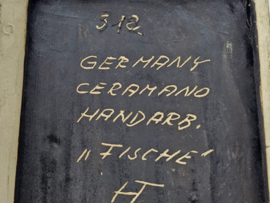 3-12.
GERMANY
CERAMANO
HANDARB.
„FISCHE“
HT